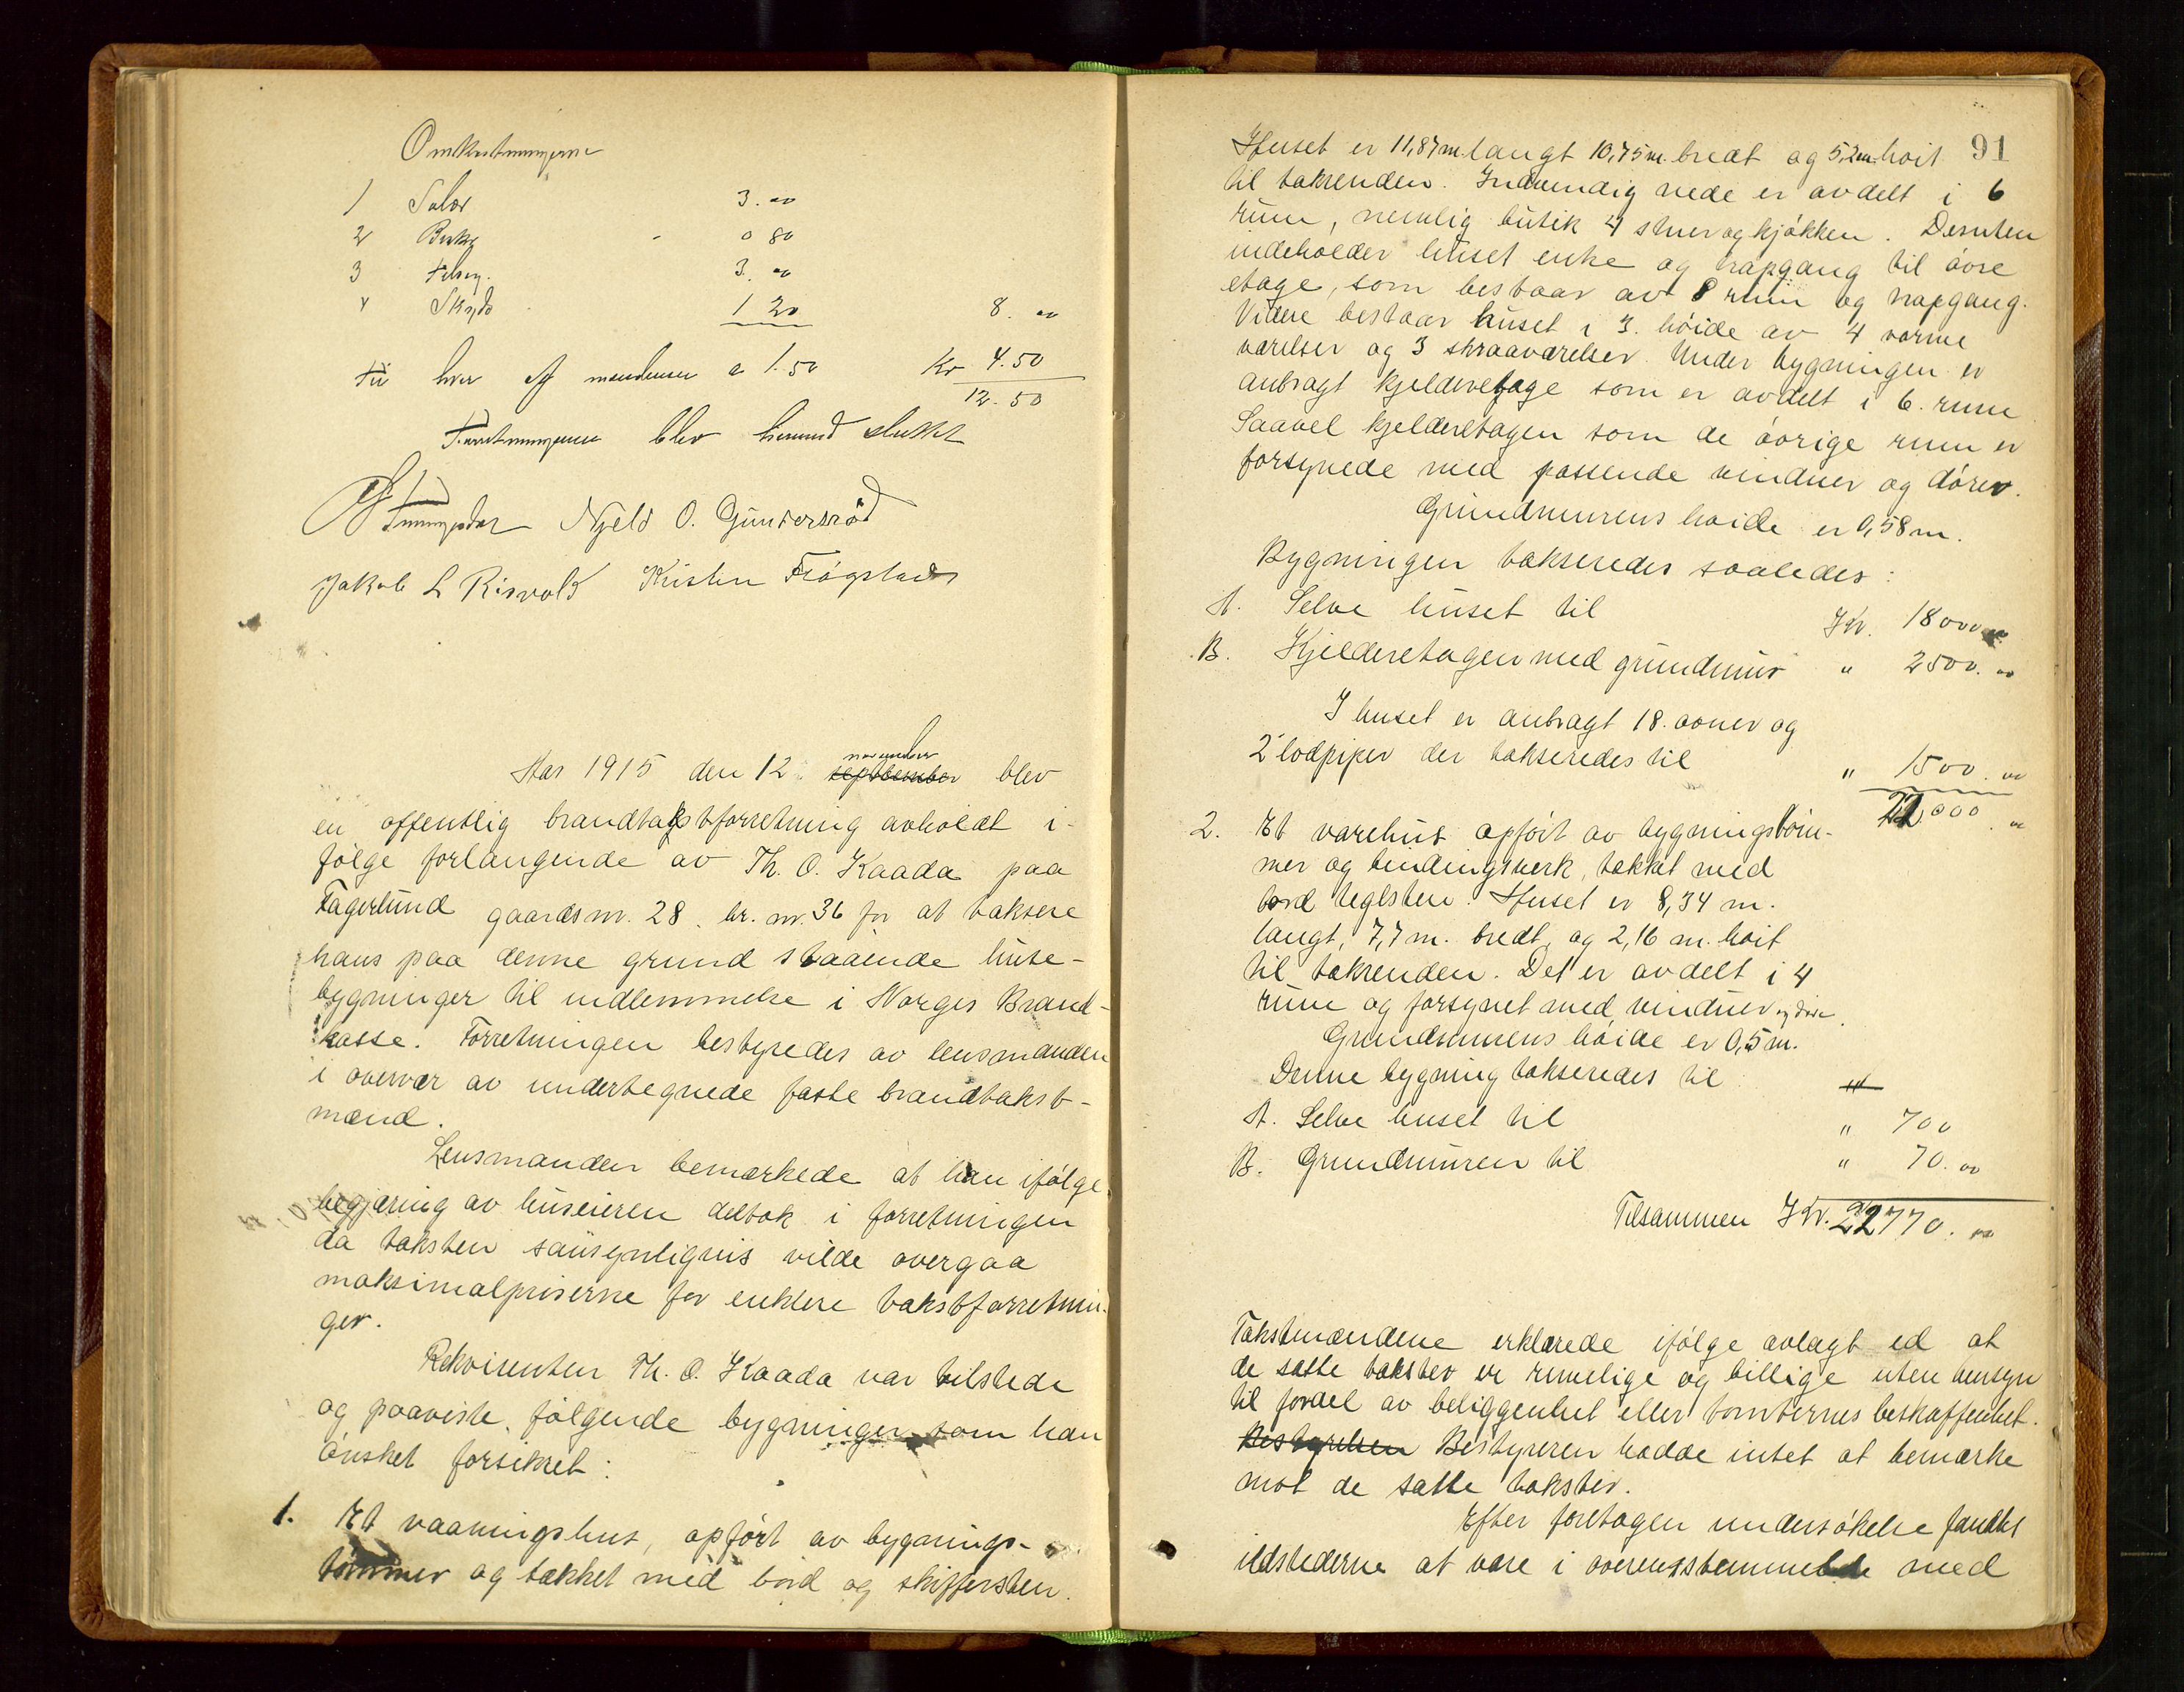 Omkostningerne
1 Salær 3.00
2 3 Bevkg 0 80
3 Tilsyn. 3.00
4 Skyds 1 20 8.00
Til hver af mændenes a 1.50 Kr 4.50
12.50
Forretningerne blev hermed sluttet
Njeld O. Gundersrød
Jakob L Risvold Kristen Frøgstad
Aar 1915 den 12 september november blev
en offentlig brandtakstforretning avholdt i-
følge forlangende av Th. O. Kaada paa
Fagerlund gaardsnr. 28. br. nr. 36 for at taksere
hans paa denne grund staaende huse-
bygninger til indlemmelse i Norges Brand-
kasse. Forretningen bestyredes av lensmanden
i overvær av undertegnede faste brandtakst-
mænd.
Lensmanden bemærkede at han ifølge
begjæring av huseieren deltok i forretningen
da taksten sansynligvis vilde overgaa
maksimalpriserne for enklere takstforretnin-
ger.
Rekvirenten Th. O. Kaada var tilstede
og paaviste følgende bygninger som han
ønsket forsikret:
1. Et vaaningshus, opført av bygnings-
tømmer og tækket med bord og skiffersten.
91
Huset er 11,87 m. langt 10,75 m. bredt og 5,2 m høit
til takrenden. Indvendig nede er avdelt i 6
rum, nemlig butik 4 stuer og kjøkken. Desuten
indeholder huset enke og trapgang til øvre
etage, som bestaar av 8 rum og trapgang.
Videre bestaar huset i 3. høide av 4 varme
værelser og 3 skraaværelser. Under bygningen er
anbragt kjelderetage som er avdelt i 6. rum
Saavel kjelderetagen som de øvrige rum er
forsynede med passende vinduer og dører.
Grundmurens høide er 0,58 m.
Bygningen takseredes saaledes:
A. Selve huset til Kr. 18000.00
B. Kjelderetagen med grundmur " 2500.00
I huset er anbragt 18. ovner og
2 lodpiper der takseredes til " 1500.00
22000.00
2. Et varehus opført av bygningstøm-
mer og bindingsverk, tækket med
bord teglsten. Huset er 8,34 m.
langt, 7,7 m. bredt, og 2,16 m. høit
til takrenden. Det er avdelt i 4
rum og forsynet med vinduer og døre.
Grundmurens høide er 0,5 m.
Denne bygning takseredes til "
A. Selve huset til " 700
B. Grundmuren til " 70.00
Tilsammen Kr. 22770.00
Takstmændene erklærede ifølge avlagt ed at
de satte takster er rimelige og billige uten hensyn
til fordel av beliggenhet eller tomternes beskaffenhet.
Bestyrelsen Bestyreren hadde intet at bemærke
mot de satte takster.
Efter foretagen undersøkelse fandtes
ildstederne at være i overensstemmelse med